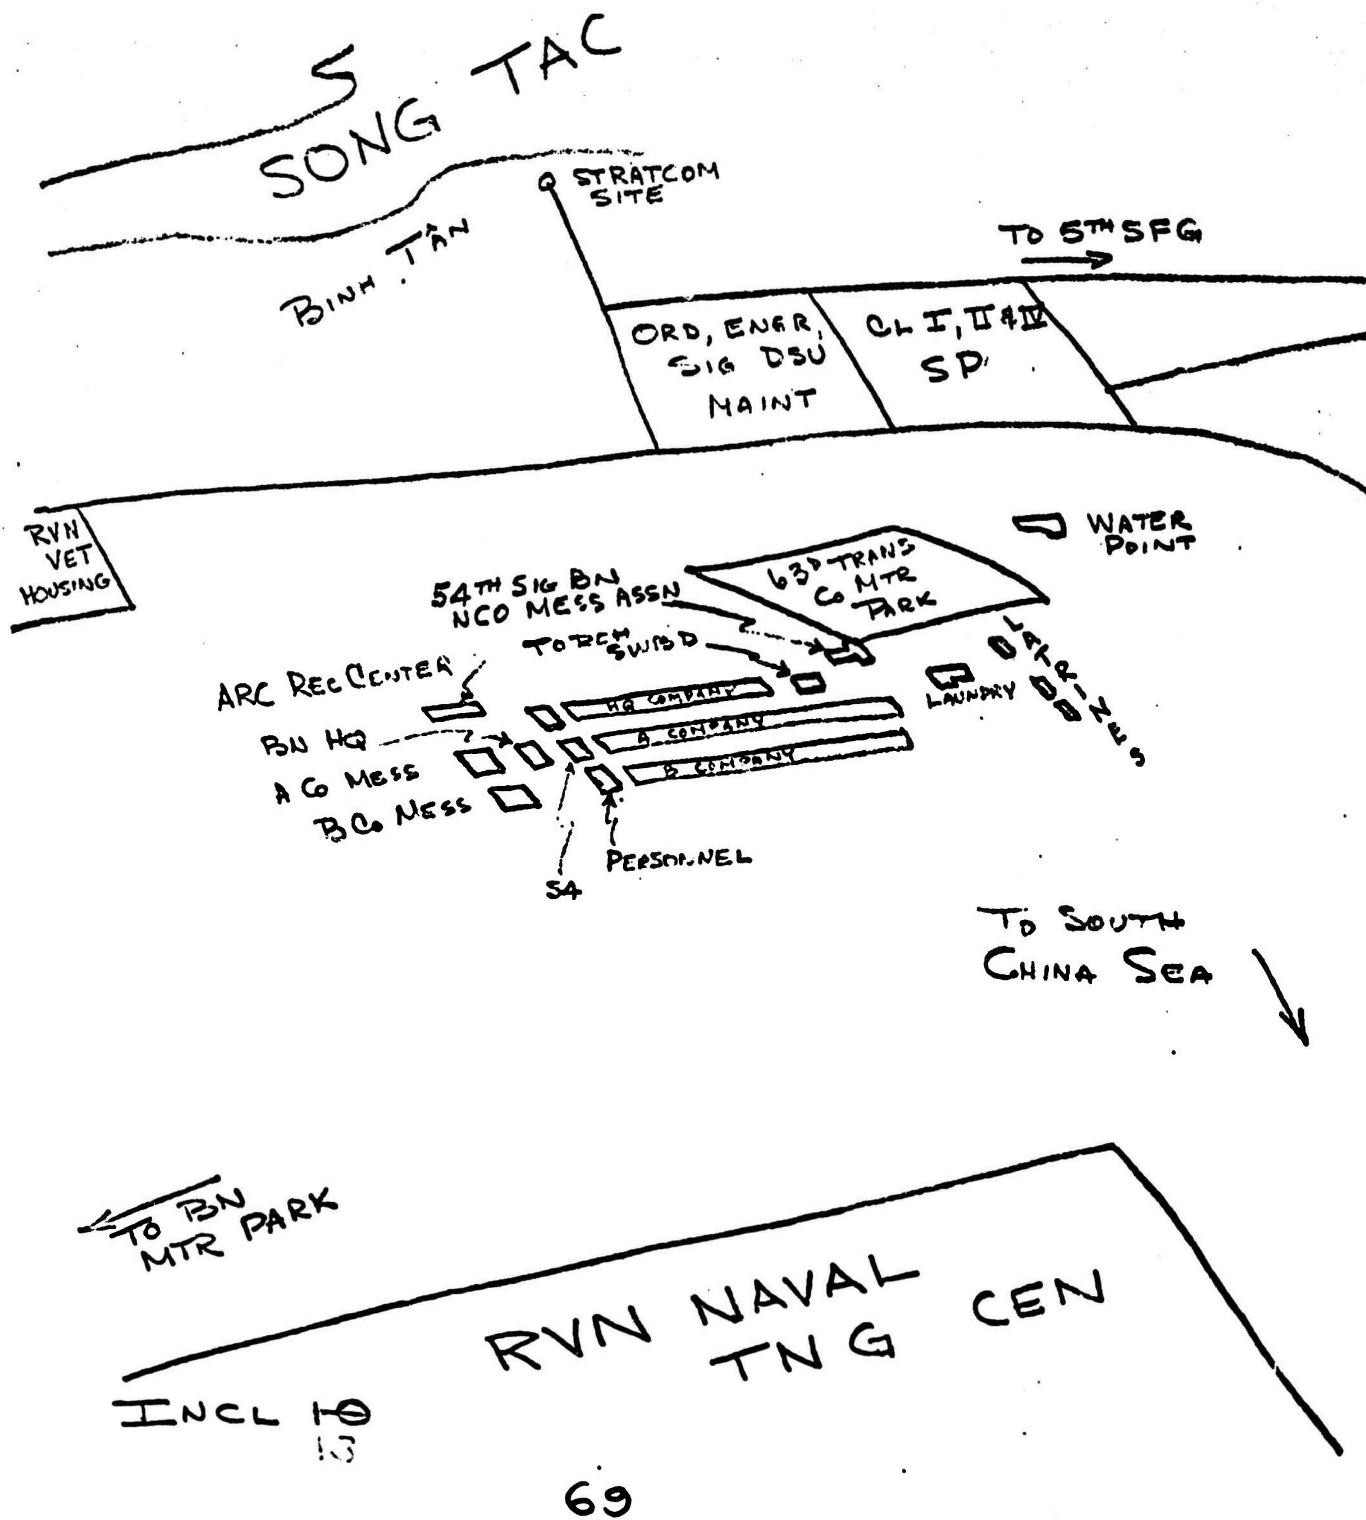 SONG TAC
STRATCOM
SITE
BINH TÂN
TO 5TH SFG
ORD, ENGR,
SIG DSU
MAINT
CL I, II & IV
SP
RVN
VET
HOUSING
WATER
POINT
63D TRANS
CO MTR
PARK
54TH SIG BN
NCO MESS ASSN
TORCH
SWBD
ARC REC CENTER
LATRINES
LAUNDRY
HQ COMPANY
A COMPANY
B COMPANY
BN HQ
A CO MESS
B CO MESS
PERSONNEL
S4
TO SOUTH
CHINA SEA
TO BN
MTR PARK
RVN NAVAL
TNG CEN
INCL 10
13
69